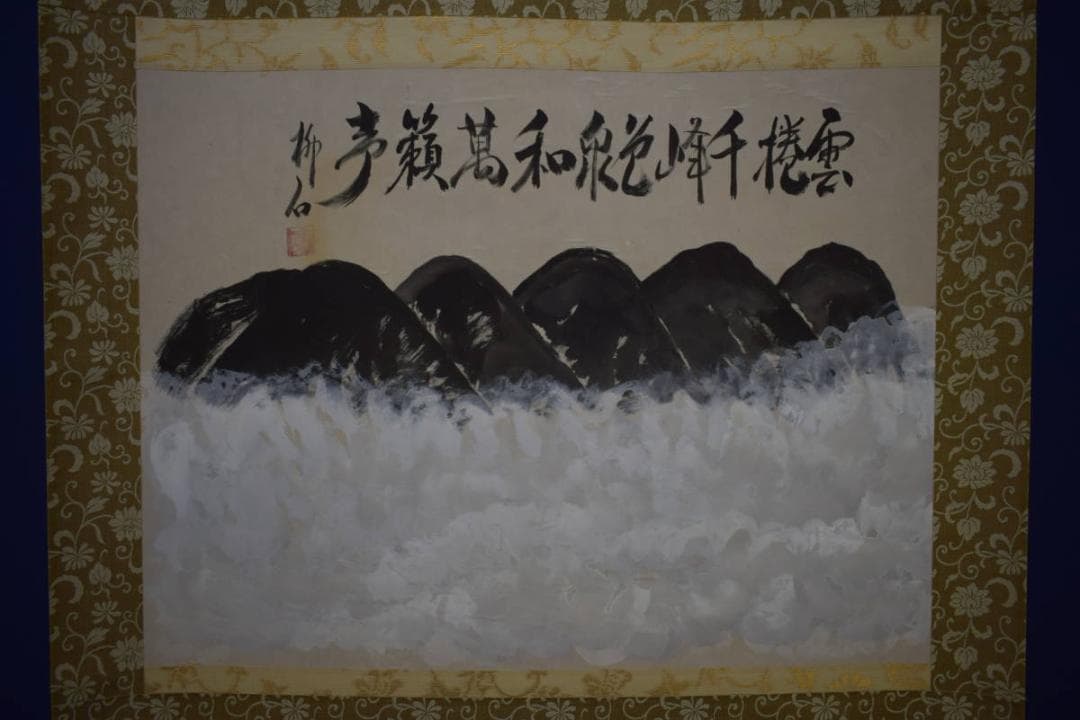 雲捲千峰色泉和萬籟聲
柳石